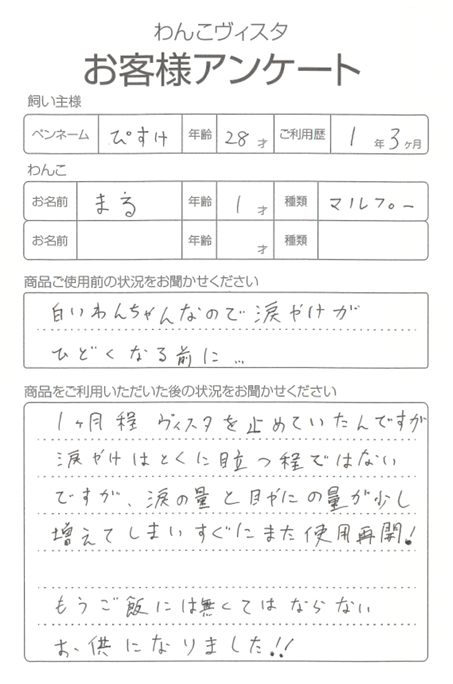 わんこヴィスタ
お客様アンケート
飼い主様
ペンネーム ぴすけ 年齢 28才 ご利用歴 1年3ヶ月
わんこ
お名前 まる 年齢 1才 種類 マルプー
お名前 年齢 才 種類
商品ご使用前の状況をお聞かせください
白いわんちゃんなので涙やけが
ひどくなる前に…
商品をご利用いただいた後の状況をお聞かせください
1ヶ月程 ヴィスタを止めていたんですが
涙やけはとくに目立つ程ではない
ですが、涙の量と目やにの量が少し
増えてしまいすぐにまた使用再開!
もうご飯には無くてはならない
お供になりました!!